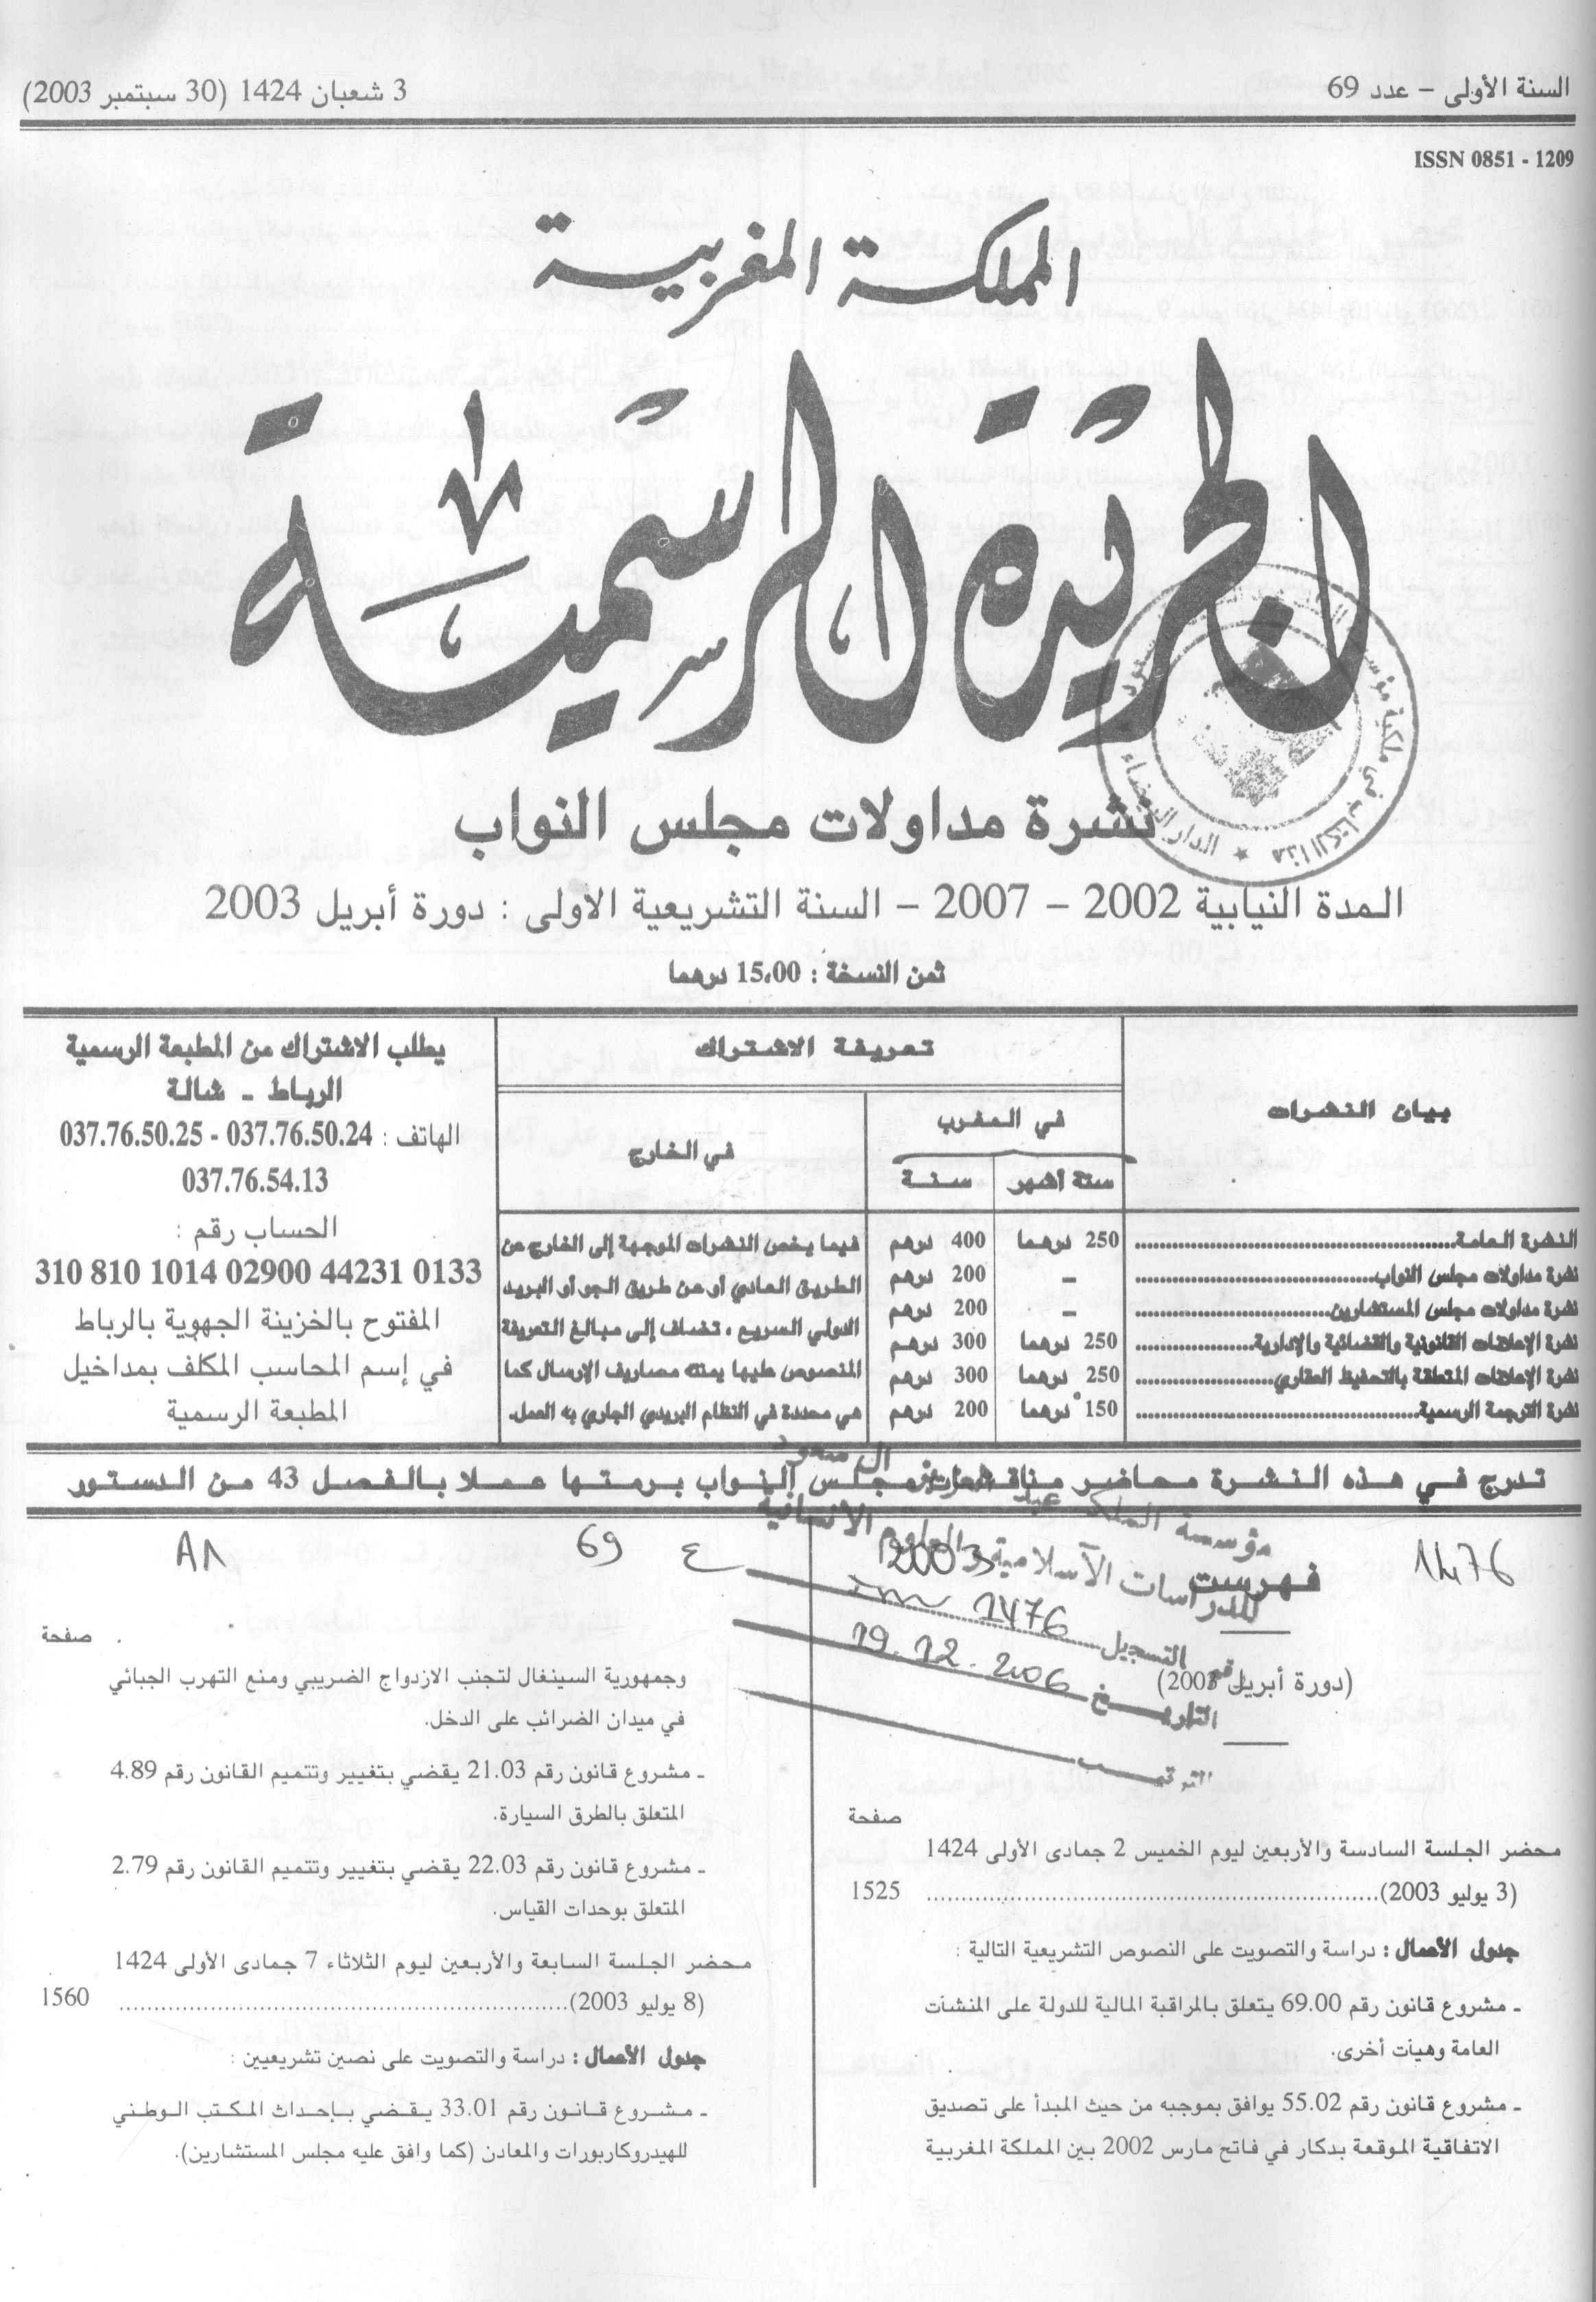 السنة الأولى – عدد 69
3 شعبان 1424 (30 سبتمبر 2003)
ISSN 0851 - 1209
المملكة المغربية
الجريدة الرسمية
نشرة مداولات مجلس النواب
المدة النيابية 2002 – 2007 – السنة التشريعية الأولى : دورة أبريل 2003
ثمن النسخة : 15،00 درهما
بيان النشرات
تعريفة الاشتراك
في المغرب
في الخارج
ستة أشهر
سنة
النشرة العامة.......... 250 درهما 400 درهم
نشرة مداولات مجلس النواب.......... – 200 درهم
نشرة مداولات مجلس المستشارين.......... – 200 درهم
نشرة الإعلانات القانونية والقضائية والإدارية.......... 250 درهما 300 درهم
نشرة الإعلانات المتعلقة بالتحفيظ العقاري.......... 250 درهما 300 درهم
نشرة الترجمة الرسمية.......... 150 درهما 200 درهم
فيما يخص النشرات الموجهة إلى الخارج عن
الطريق العادي أو عن طريق الجو أو البريد
الدولي السريع ، تضاف إلى مبالغ التعريفة
المنصوص عليها يمنته مصاريف الإرسال كما
هي محددة في النظام البريدي الجاري به العمل.
يطلب الاشتراك من المطبعة الرسمية
الرباط ـ شالة
الهاتف : 037.76.50.24 - 037.76.50.25
037.76.54.13
الحساب رقم :
310 810 1014 02900 44231 0133
المفتوح بالخزينة الجهوية بالرباط
في إسم المحاسب المكلف بمداخيل
المطبعة الرسمية
تدرج في هذه النشرة محاضر مناقشات مجلس النواب برمتها عملا بالفصل 43 من الدستور
1476
ع 69
آل سعود
مؤسسة الملك عبد العزيز
للدراسات الاسلامية والعلوم الانسانية
2003
رقم التسجيل 1476
التاريخ 19.12.2006
الترتيب
فهرست
(دورة أبريل 2003)
صفحة
محضر الجلسة السادسة والأربعين ليوم الخميس 2 جمادى الأولى 1424
(3 يوليو 2003).......... 1525
جدول الأعمال : دراسة والتصويت على النصوص التشريعية التالية :
ـ مشروع قانون رقم 69.00 يتعلق بالمراقبة المالية للدولة على المنشآت
العامة وهيآت أخرى.
ـ مشروع قانون رقم 55.02 يوافق بموجبه من حيث المبدأ على تصديق
الاتفاقية الموقعة بدكار في فاتح مارس 2002 بين المملكة المغربية
صفحة
وجمهورية السينغال لتجنب الازدواج الضريبي ومنع التهرب الجبائي
في ميدان الضرائب على الدخل.
ـ مشروع قانون رقم 21.03 يقضي بتغيير وتتميم القانون رقم 4.89
المتعلق بالطرق السيارة.
ـ مشروع قانون رقم 22.03 يقضي بتغيير وتتميم القانون رقم 2.79
المتعلق بوحدات القياس.
محضر الجلسة السابعة والأربعين ليوم الثلاثاء 7 جمادى الأولى 1424
(8 يوليو 2003).......... 1560
جدول الأعمال : دراسة والتصويت على نصين تشريعيين :
ـ مشروع قانون رقم 33.01 يقضي بإحداث المكتب الوطني
للهيدروكاربورات والمعادن (كما وافق عليه مجلس المستشارين).